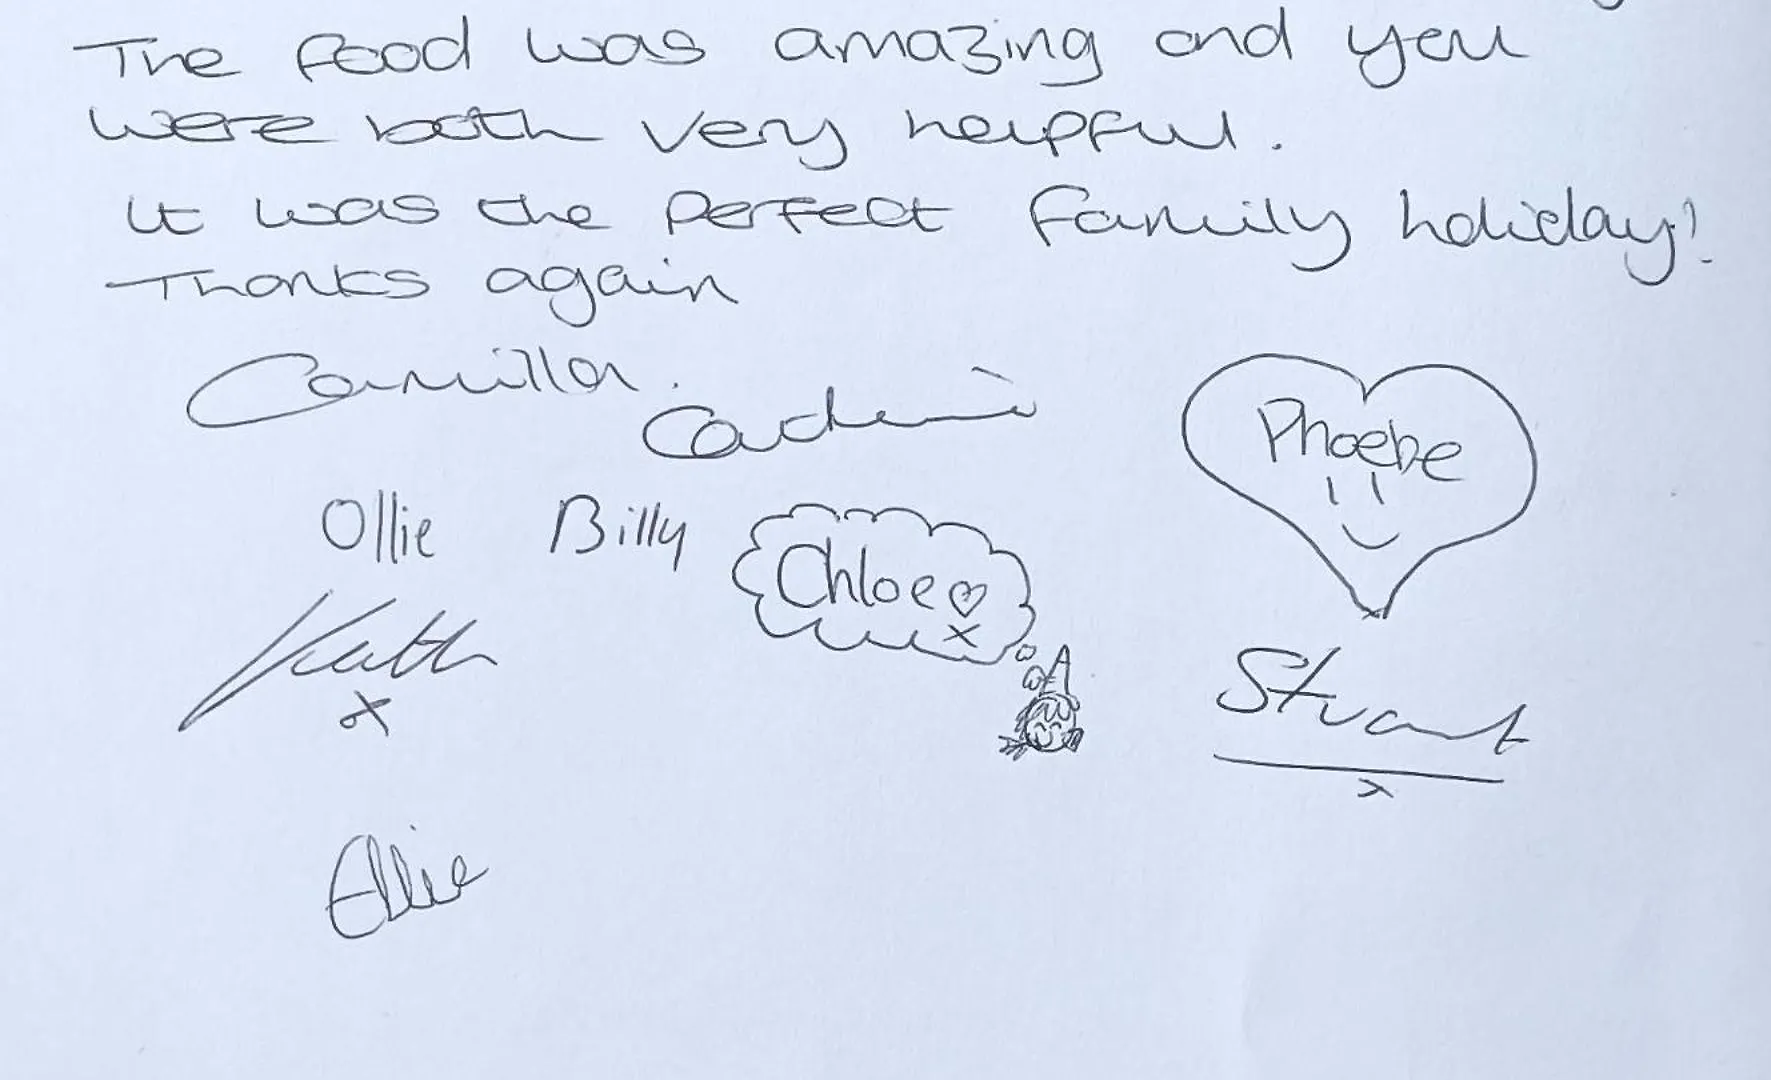 The food was amazing and you
were both very helpful.
It was the perfect family holiday!
Thanks again
Camilla.
Phoebe
Ollie Billy Chloe
x
Kath
x
Stuart
x
Ellie